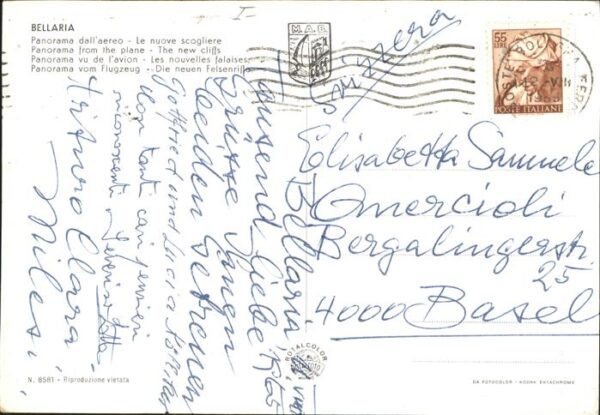 BELLARIA
Panorama dall'aereo - Le nuove scogliere
Panorama from the plane - The new cliffs
Panorama vu de l'avion - Les nouvelles falaises
Panorama vom Flugzeug - Die neuen Felsenriffs
I-
M.A.B.
55
LIRE
POSTE ITALIANE
Svizzera
Elisabetta Samuele
Omercioli
Bergalingerstr.
25
4000 Basel
Bellaria,
Tausend liebe
Grüsse Ihnen
beiden
Gottfried und Lucia
con tanti cari pensieri
riconoscenti
Arturo Clara
Miles,
ROTALCOLOR
N. 8581 - Riproduzione vietata
DA FOTOCOLOR - KODAK EKTACHROME